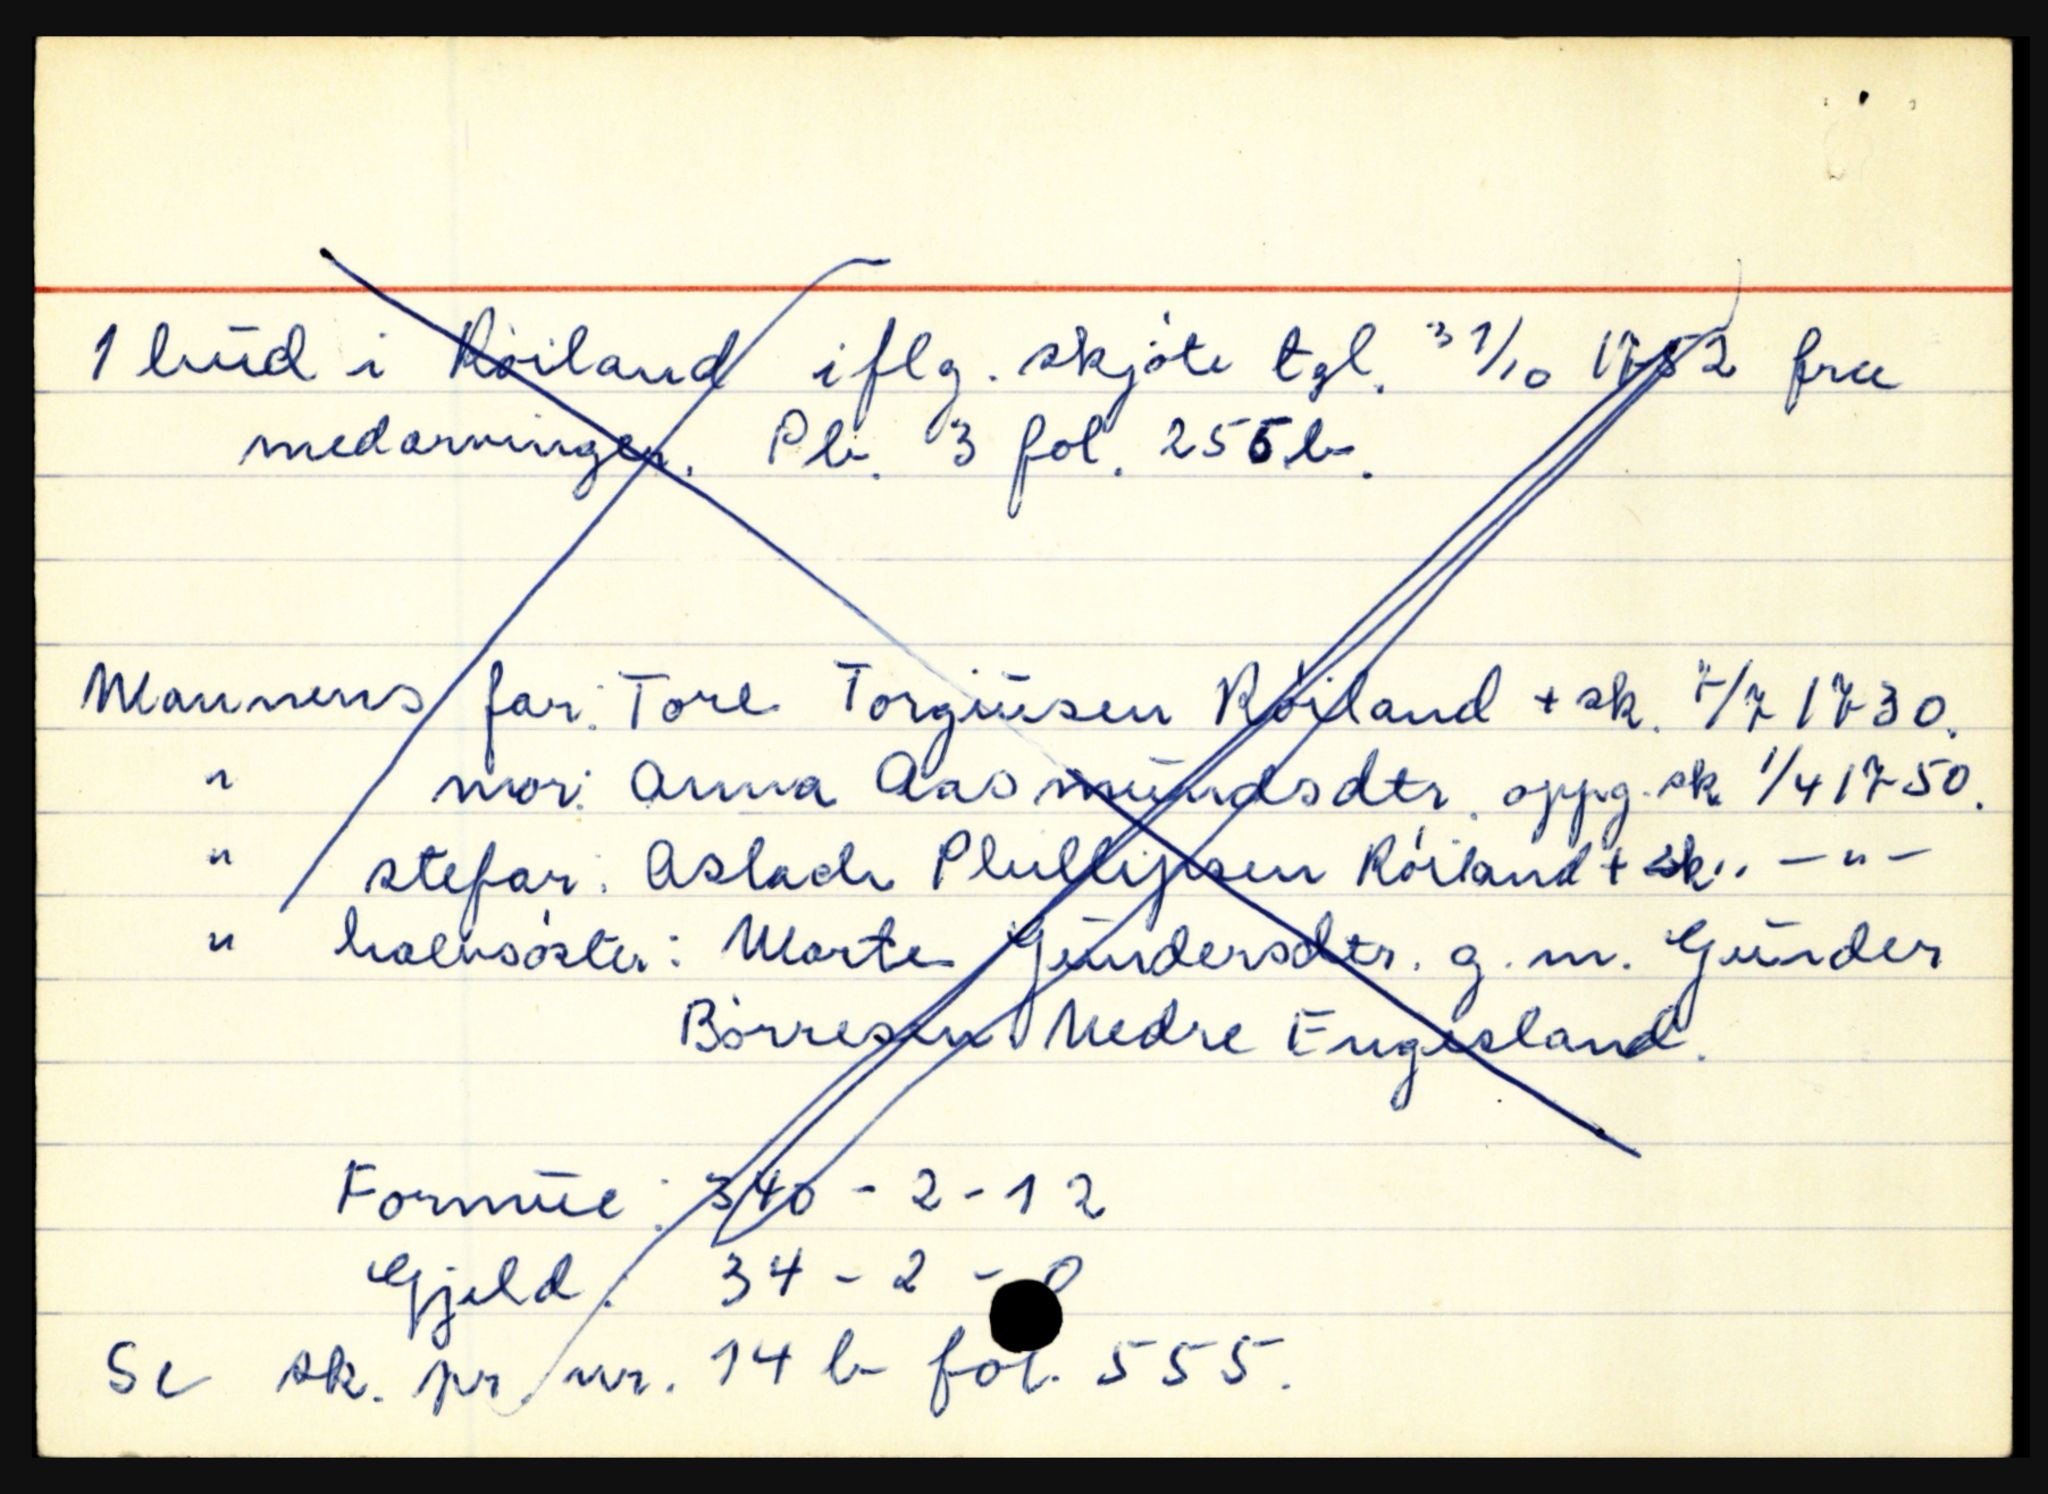 1 hud i Röiland iflg. skjöte tgl. 31/10 1752 fra
medarvinger. Pb. 3 fol. 255b.
Mannens far: Tore Torgiusen Röiland + sk. 7/7 1730.
" mor: Anna Aasmundsdtr. oppg. sk 1/4 1750.
" stefar: Aslach Phillipsen Röiland + sk. - " -
" halvsöster: Marte Gundersdtr. g. m. Gunder
Börresen Nedre Engesland.
Formue: 340 - 2 - 12
Gjeld: 34 - 2 - 0
Se sk. pr. nr. 14 b fol. 555.